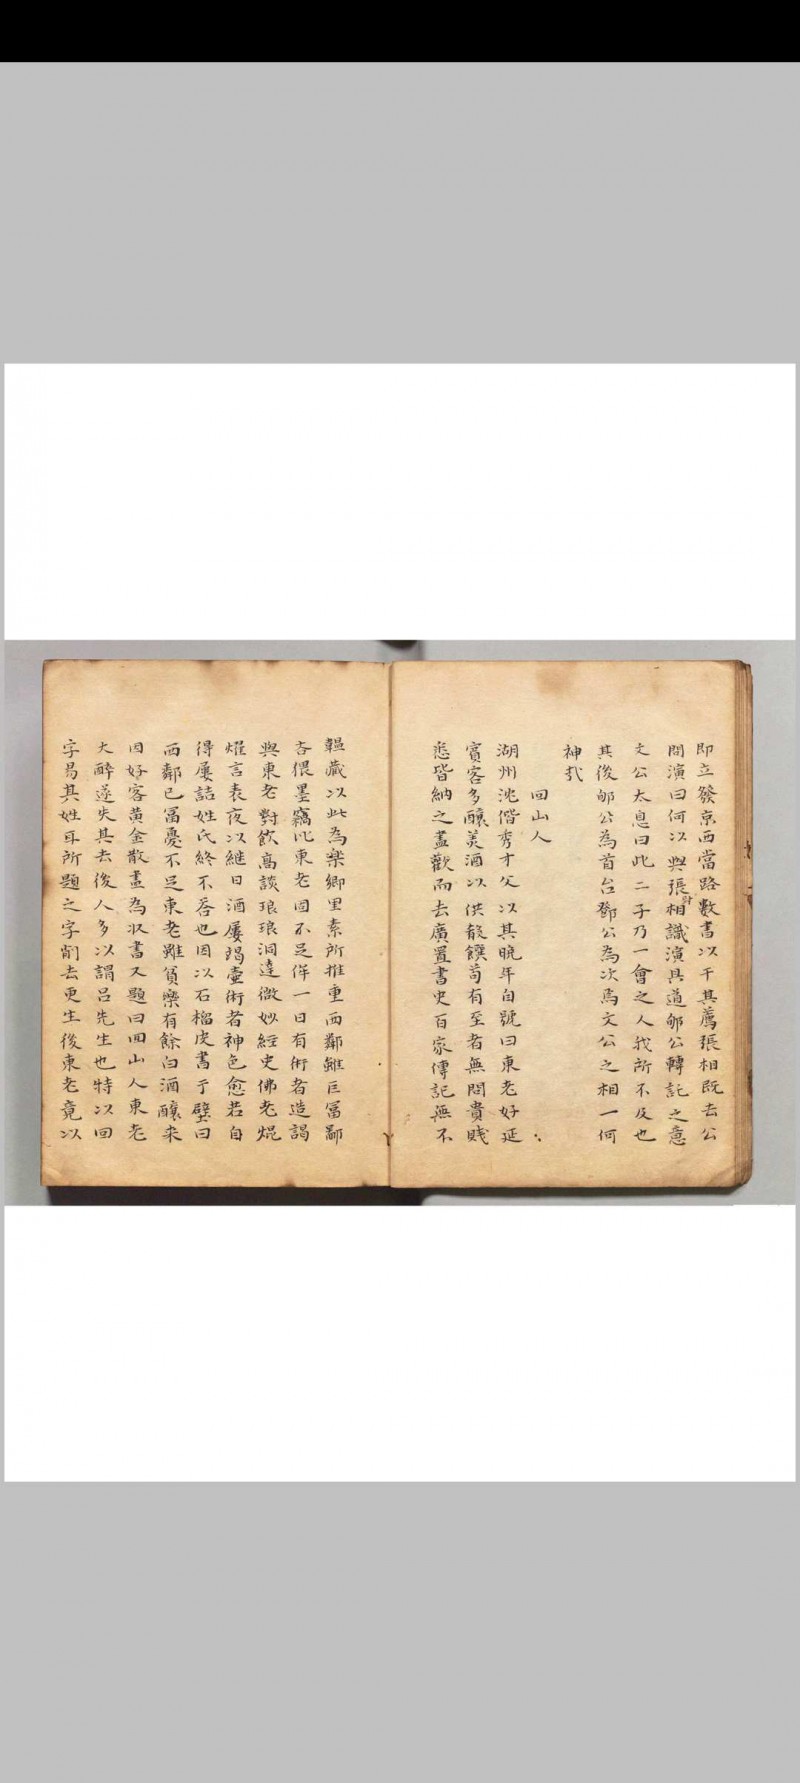 即立發京西當路數書以干其薦張相既去公
問演曰何以與張相識演具道郇公轉託之意
文公太息曰此二子乃一會之人我所不及也
其後郇公為首台鄧公為次焉文公之相一何
神哉
回山人
湖州沈偕秀才父以其晚年自號曰東老好延
賓客多釀美酒以供殽饌苟有至者無問貴賤
悉皆納之盡歡而去廣置書史百家傳記無不
韞藏以此為樂鄉里素所推重西鄰雖巨富鄙
吝猥墨竊比東老固不足侔一日有術者造謁
與東老對飲高談琅琅洞達微妙經史佛老焜
燿言表夜以継日酒屢竭壷術者神色愈若自
得屢詰姓氏終不荅也因以石榴皮書于壁曰
西鄰已富憂不足東老雖貧樂有餘白酒釀来
因好客黃金散盡為収書又題曰回山人東老
大醉遂失其去後人多以謂呂先生也特以回
字易其姓耳所題之字削去更生後東老竟以